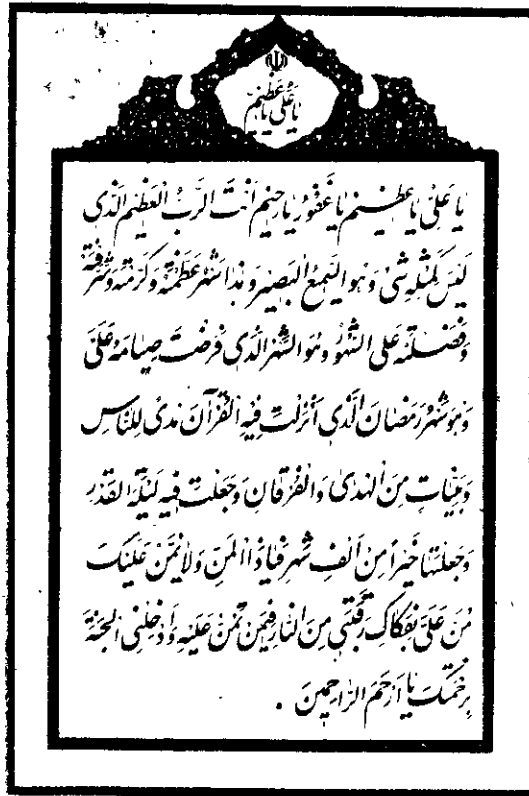 یا عَلِیُّ یا عَظیمُ
یا عَلِیُّ یا عَظیمُ یا غَفُورُ یا رَحیمُ اَنْتَ الرَّبُّ الْعَظیمُ الَّذی
لَیْسَ کَمِثْلِهِ شَیْ وَ هُوَ السَّمیعُ الْبَصیرُ وَ هٰذا شَهْرٌ عَظَّمْتَهُ وَ کَرَّمْتَهُ وَ شَرَّفْتَهُ
وَ فَضَّلْتَهُ عَلَی الشُّهُورِ وَ هُوَ الشَّهْرُ الَّذی فَرَضْتَ صِیامَهُ عَلَیَّ
وَ هُوَ شَهْرُ رَمَضانَ الَّذی اَنْزَلْتَ فیهِ الْقُرْآنَ هُدیً لِلنّاسِ
وَ بَیِّناتٍ مِنَ الْهُدیٰ وَ الْفُرْقانِ وَ جَعَلْتَ فیهِ لَیْلَةَ الْقَدْرِ
وَ جَعَلْتَها خَیْراً مِنْ اَلْفِ شَهْرٍ فَیا ذَا الْمَنِّ وَ لا یُمَنُّ عَلَیْکَ
مُنَّ عَلَیَّ بِفَکاکِ رَقَبَتی مِنَ النّارِ فیمَنْ تَمُنُّ عَلَیْهِ وَ اَدْخِلْنِی الْجَنَّةَ
بِرَحْمَتِکَ یا اَرْحَمَ الرّاحِمینَ .